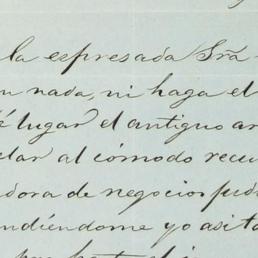 la espresada Srã
nada, ni haga el
lugar el antiguo
al cómodo
dora de negocios
ndiéndome yo asi